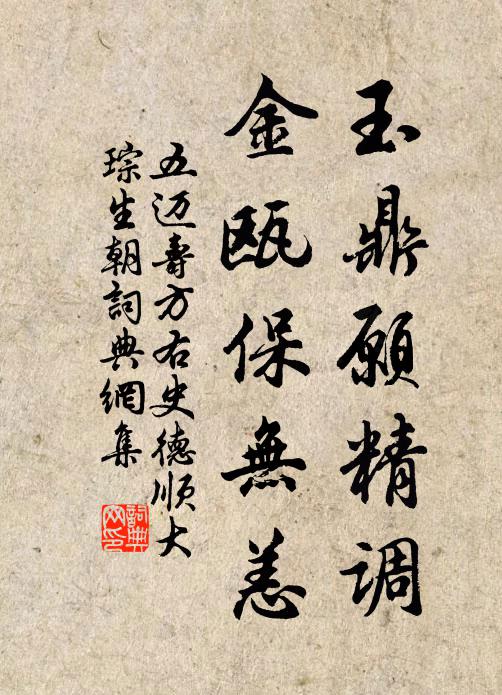 玉鼎願精调
金瓯保無恙
五迈壽方右史德順大
琮生朝詞典網集
詞典
网印